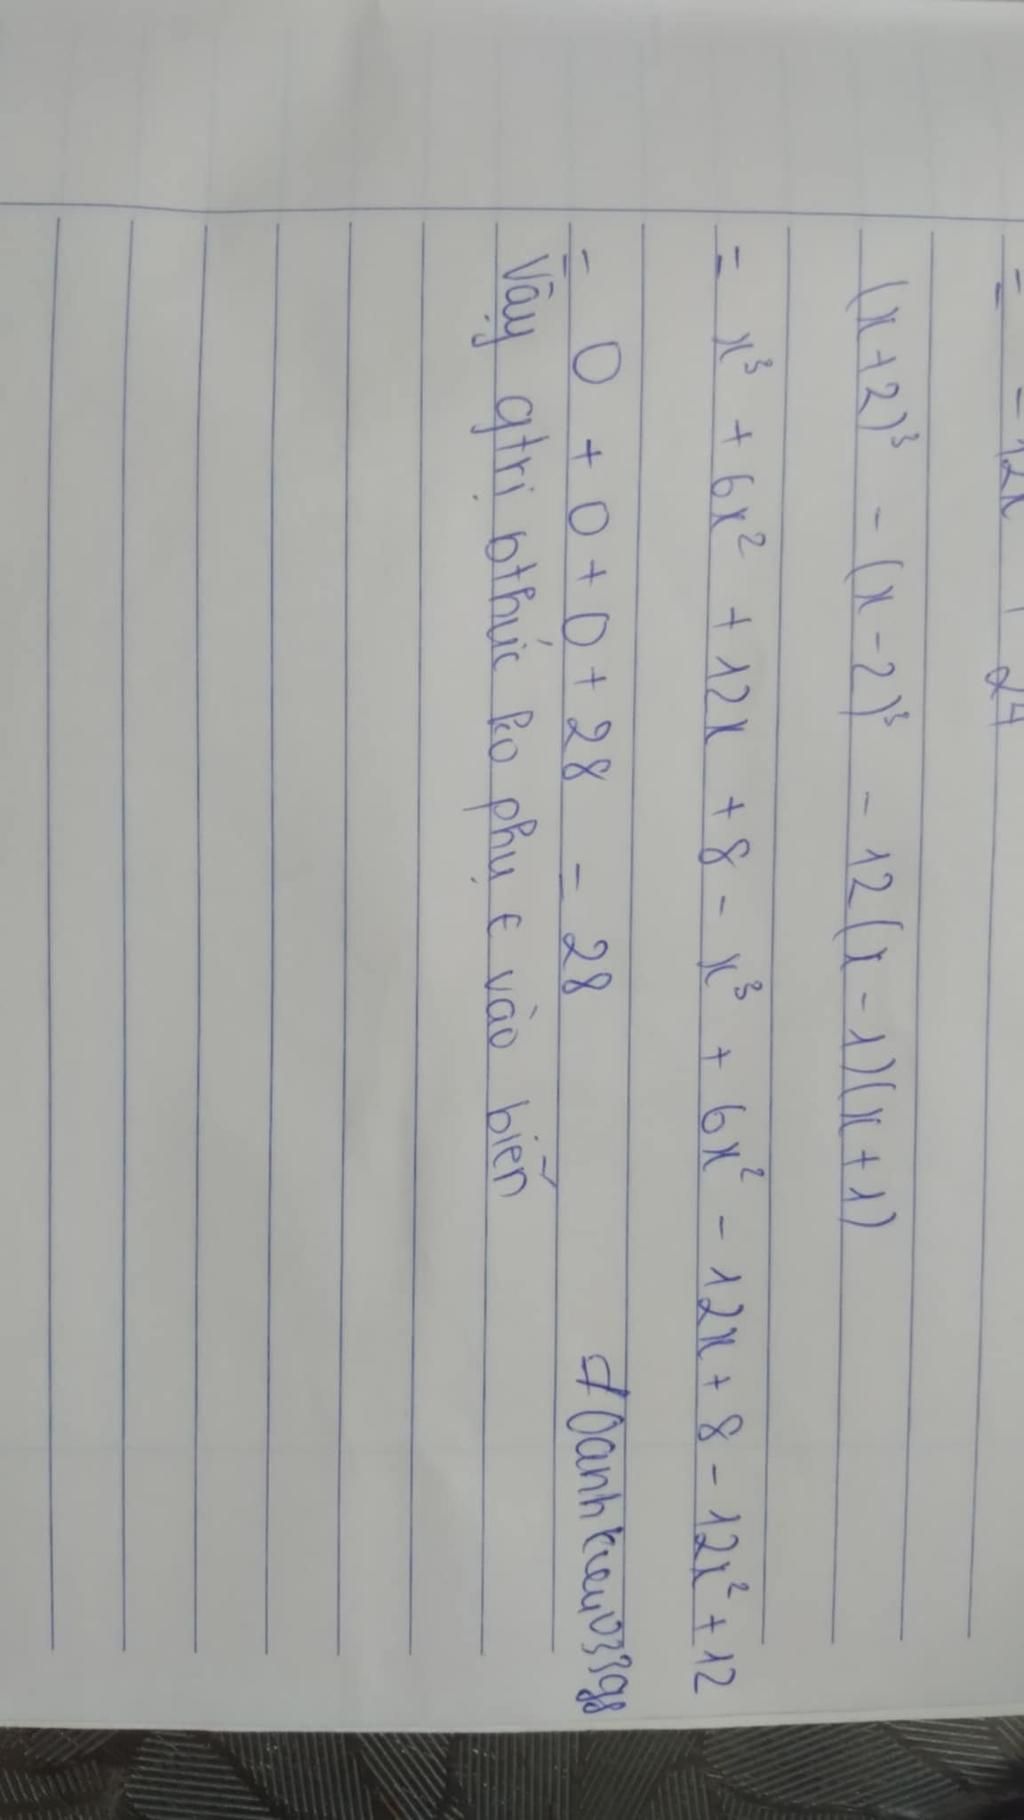 = -12x + 24
(x+2)³ - (x-2)³ - 12(x-1)(x+1)
= x³ + 6x² + 12x + 8 - x³ + 6x² - 12x + 8 - 12x² + 12
= 0 + 0 + 0 + 28 = 28
Vậy gtrị bthức ko phụ € vào biến